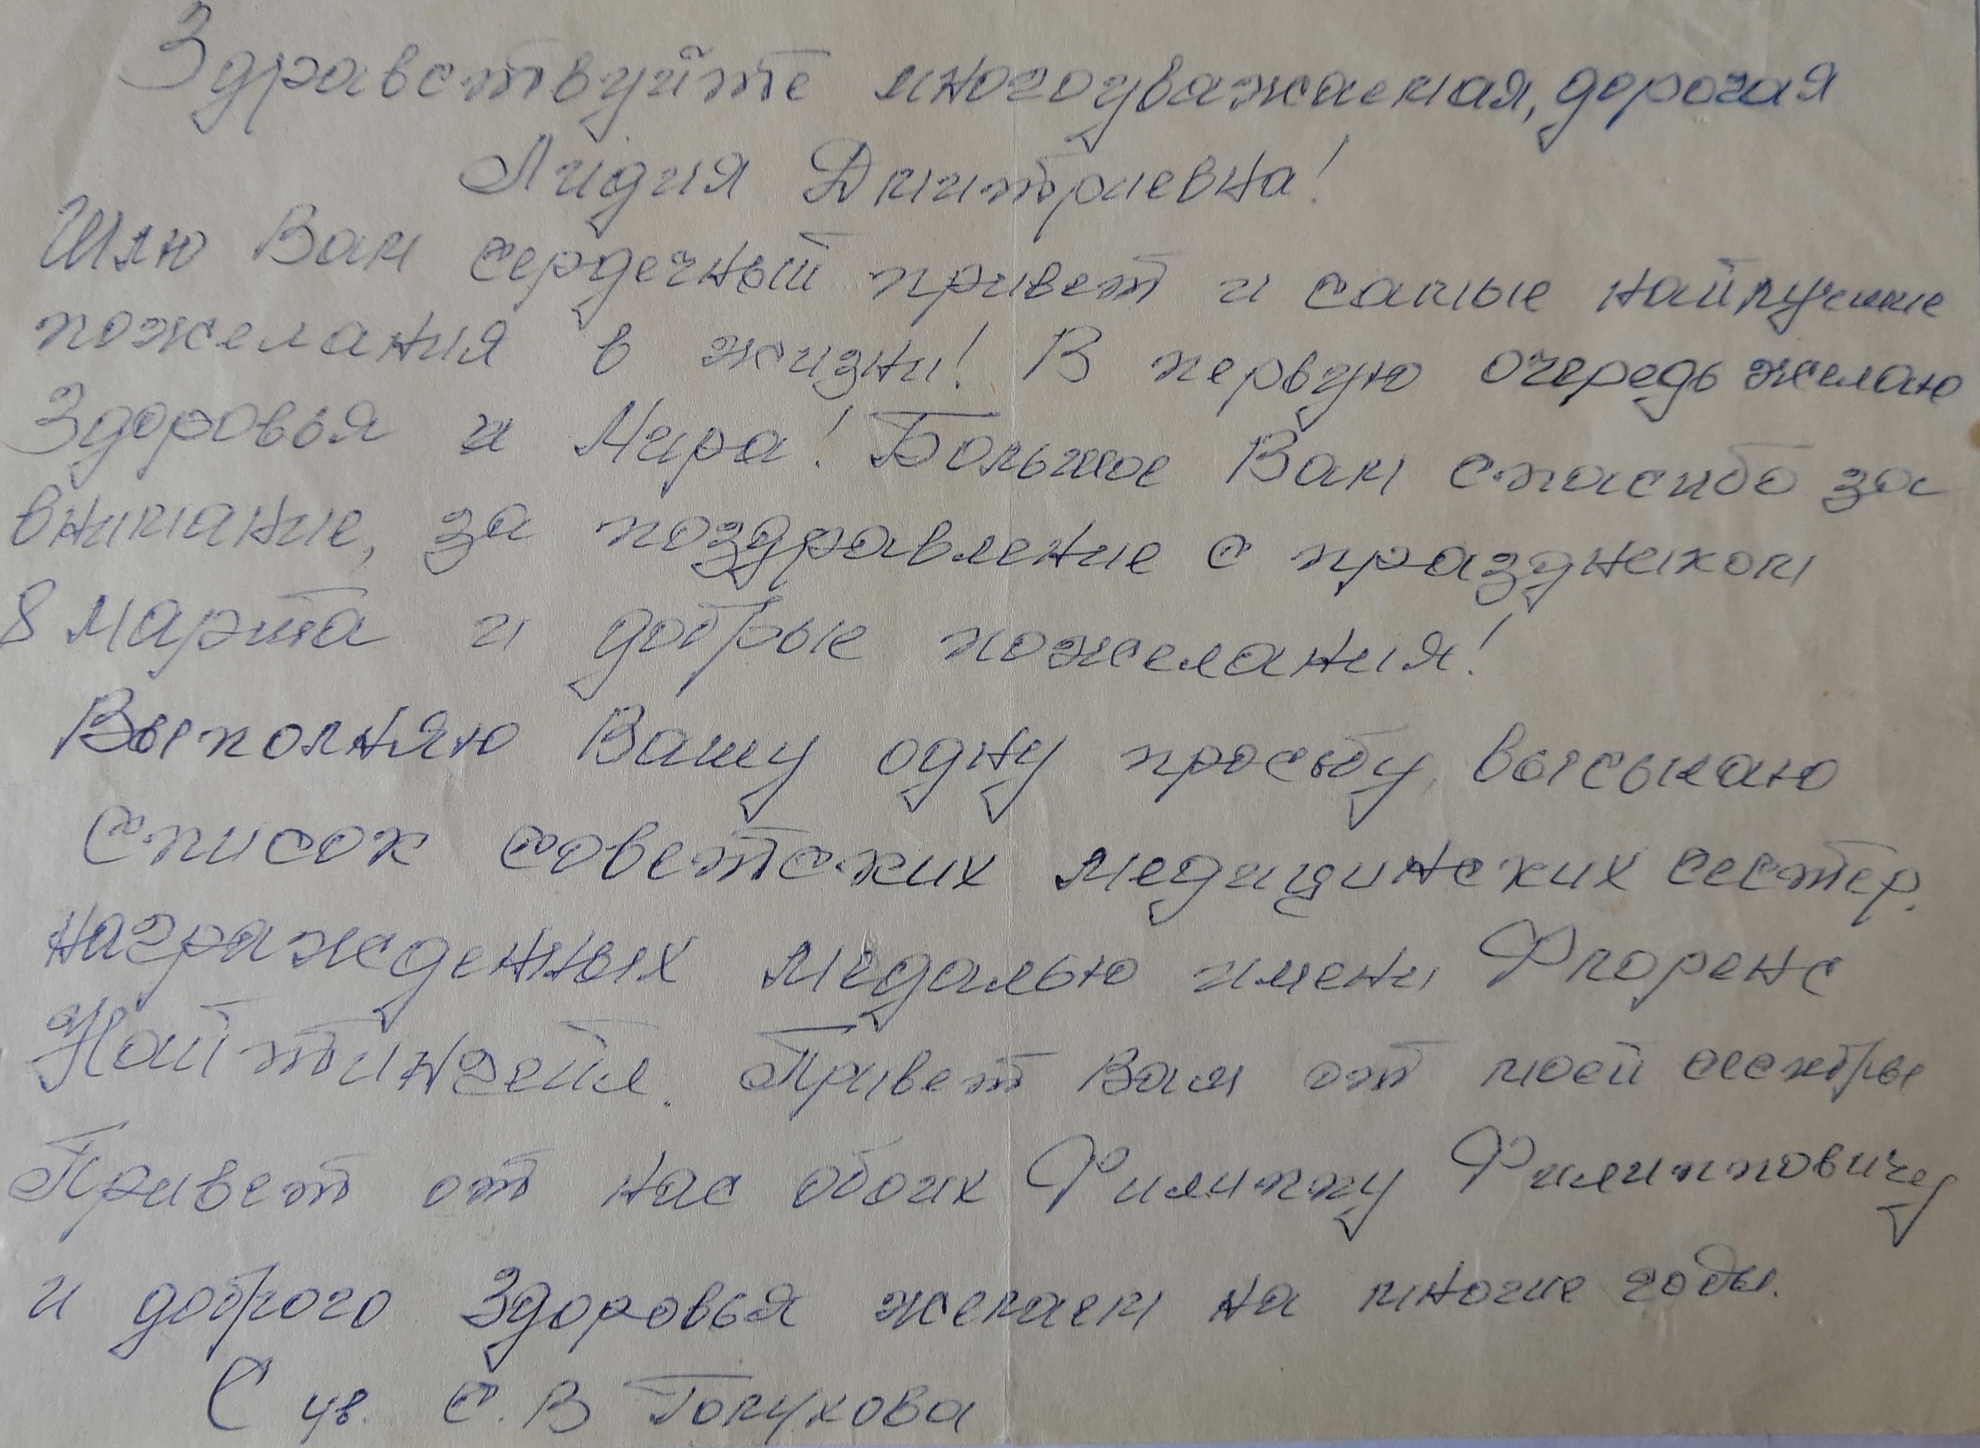 Здравствуйте многоуважаемая, дорогая
Лидия Дмитриевна!
Шлю Вам сердечный привет и самые найлучшие
пожелания в жизни! В первую очередь желаю
Здоровья и Мира! Большое Вам спасибо за
внимание, за поздравление с праздником
8 марта и добрые пожелания!
Выполняю Вашу одну просьбу, высылаю
список советских медицинских сестер.
награжденных медалью имени Флоренс
Найтингейл. Привет Вам от моей сестры
Привет от нас обоих Филиппу Филипповичу
и доброго Здоровья желаем на многие годы.
С ув. С. В Голухова